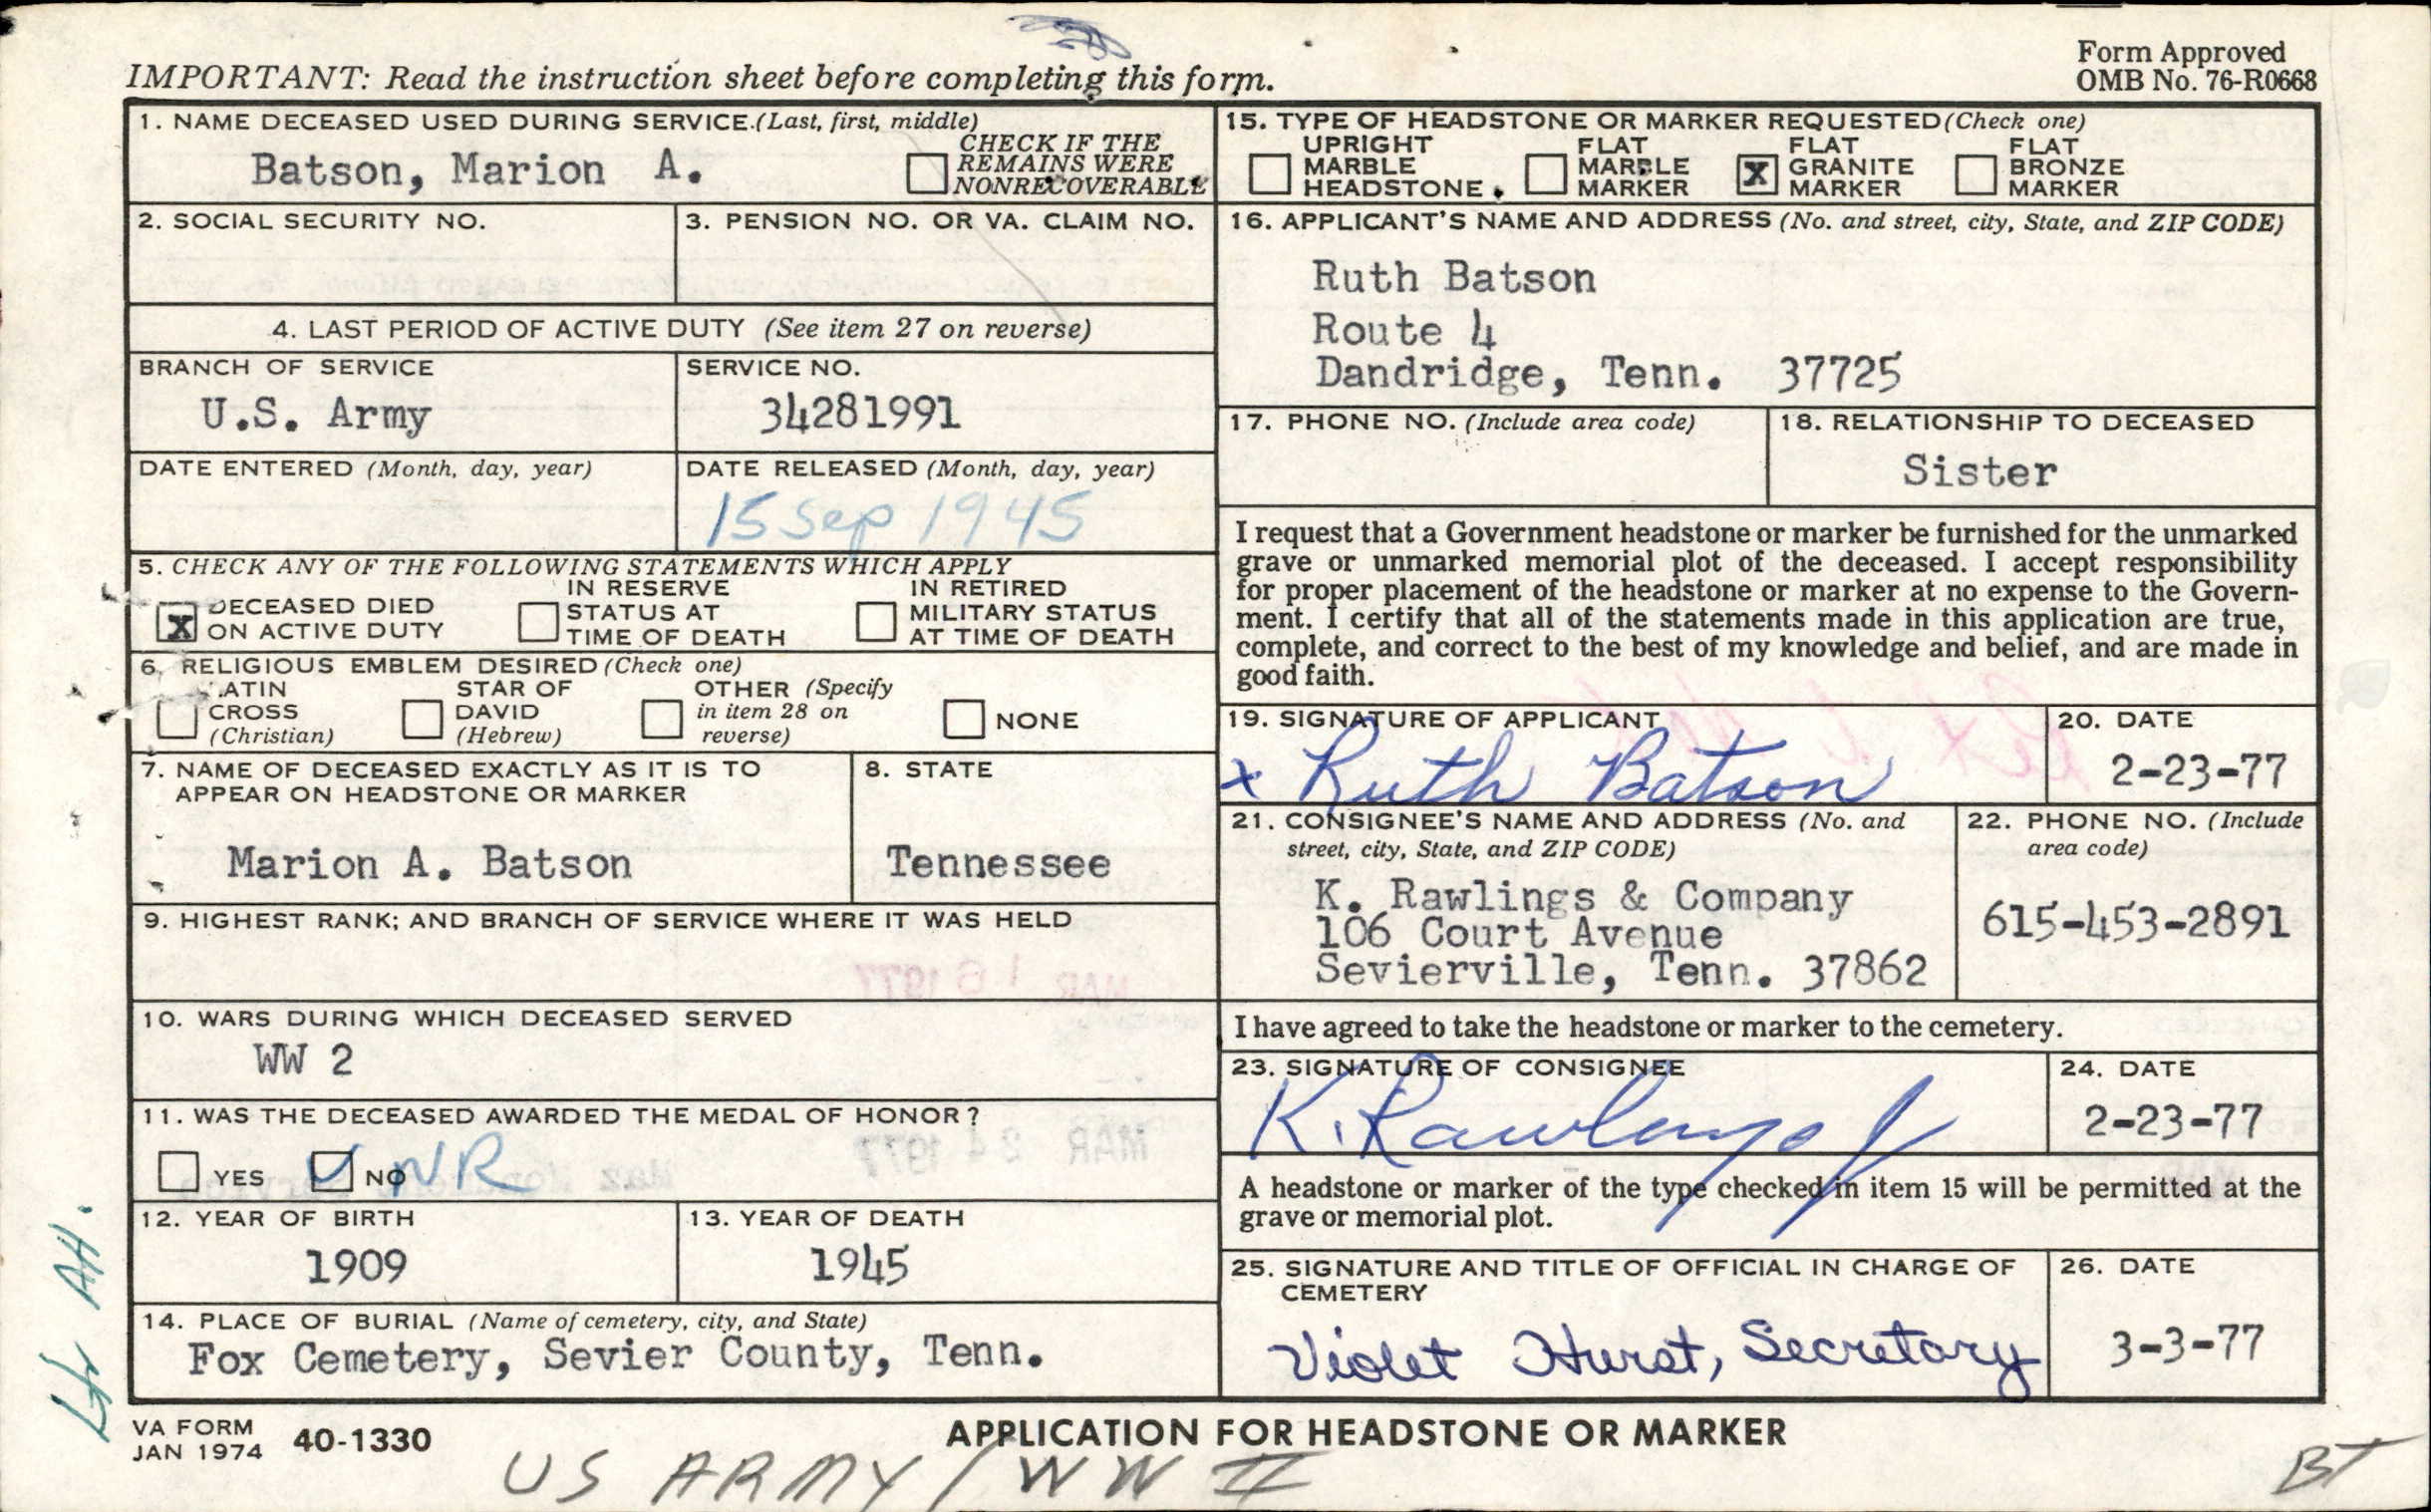 IMPORTANT: Read the instruction sheet before completing this form.
Form Approved
OMB No. 76-R0668
1. NAME DECEASED USED DURING SERVICE.(Last, first, middle)
Batson, Marion A.
CHECK IF THE
REMAINS WERE
NONRECOVERABLE
2. SOCIAL SECURITY NO.
3. PENSION NO. OR VA. CLAIM NO.
4. LAST PERIOD OF ACTIVE DUTY (See item 27 on reverse)
BRANCH OF SERVICE
U.S. Army
SERVICE NO.
34281991
DATE ENTERED (Month, day, year)
DATE RELEASED (Month, day, year)
15 Sep 1945
5. CHECK ANY OF THE FOLLOWING STATEMENTS WHICH APPLY
X DECEASED DIED
ON ACTIVE DUTY
IN RESERVE
STATUS AT
TIME OF DEATH
IN RETIRED
MILITARY STATUS
AT TIME OF DEATH
6. RELIGIOUS EMBLEM DESIRED (Check one)
LATIN
CROSS
(Christian)
STAR OF
DAVID
(Hebrew)
OTHER (Specify
in item 28 on
reverse)
NONE
7. NAME OF DECEASED EXACTLY AS IT IS TO
APPEAR ON HEADSTONE OR MARKER
Marion A. Batson
8. STATE
Tennessee
9. HIGHEST RANK; AND BRANCH OF SERVICE WHERE IT WAS HELD
MAR 16 1977
10. WARS DURING WHICH DECEASED SERVED
WW 2
11. WAS THE DECEASED AWARDED THE MEDAL OF HONOR?
YES
NO
NR
MAR 24 1977
12. YEAR OF BIRTH
1909
13. YEAR OF DEATH
1945
14. PLACE OF BURIAL (Name of cemetery, city, and State)
Fox Cemetery, Sevier County, Tenn.
15. TYPE OF HEADSTONE OR MARKER REQUESTED (Check one)
UPRIGHT
MARBLE
HEADSTONE
FLAT
MARBLE
MARKER
X FLAT
GRANITE
MARKER
FLAT
BRONZE
MARKER
16. APPLICANT'S NAME AND ADDRESS (No. and street, city, State, and ZIP CODE)
Ruth Batson
Route 4
Dandridge, Tenn. 37725
17. PHONE NO. (Include area code)
18. RELATIONSHIP TO DECEASED
Sister
I request that a Government headstone or marker be furnished for the unmarked
grave or unmarked memorial plot of the deceased. I accept responsibility
for proper placement of the headstone or marker at no expense to the Govern-
ment. I certify that all of the statements made in this application are true,
complete, and correct to the best of my knowledge and belief, and are made in
good faith.
19. SIGNATURE OF APPLICANT
x Ruth Batson
20. DATE
2-23-77
21. CONSIGNEE'S NAME AND ADDRESS (No. and
street, city, State, and ZIP CODE)
K. Rawlings & Company
106 Court Avenue
Sevierville, Tenn. 37862
22. PHONE NO. (Include
area code)
615-453-2891
I have agreed to take the headstone or marker to the cemetery.
23. SIGNATURE OF CONSIGNEE
K. Rawlings
24. DATE
2-23-77
A headstone or marker of the type checked in item 15 will be permitted at the
grave or memorial plot.
25. SIGNATURE AND TITLE OF OFFICIAL IN CHARGE OF
CEMETERY
Violet Hurst, Secretary
26. DATE
3-3-77
VA FORM
JAN 1974 40-1330
APPLICATION FOR HEADSTONE OR MARKER
US ARMY / WW II
BT